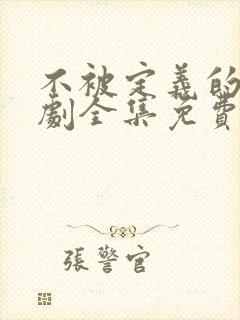 不被定義的
劇全集免費
張警官